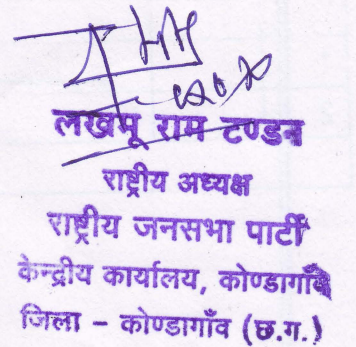 लखमू राम टण्डन
राष्ट्रीय अध्यक्ष
राष्ट्रीय जनसभा पार्टी
केन्द्रीय कार्यालय, कोण्डागाँव
जिला – कोण्डागाँव (छ.ग.)